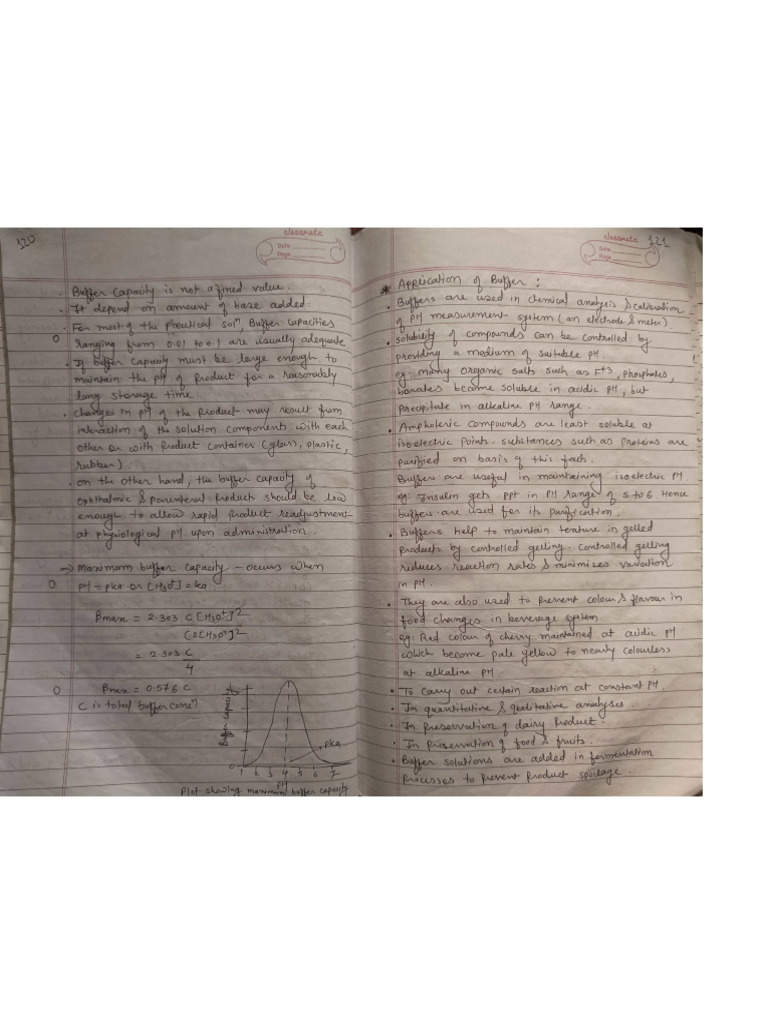 120
classmate
Date
Page
• Buffer Capacity is not a fined value.
• It depend on amount of base added.
• For most of the pharutical solⁿ, Buffer capacities
ranging from 0.01 to 0.1 are usually adequate
• If buffer capacity must be large enough to
maintain the pH of Product for a reasonably
long storage time.
• changes in pH of the product may result from
interaction of the solution components with each
other or with Product container (glass, plastic,
rubber)
• on the other hand, the buffer capacity of
ophthalmic & parenteral Products should be low
enough to allow rapid Product readjustment
at physiological pH upon administration.
→ Maximum buffer capacity – occurs when
pH = pka or [H3O+] = ka
Bmax = 2.303 C [H3O+]2
(2[H3O+])2
= 2.303 C
4
Bmax = 0.576 C
C is total buffer concⁿ
Buffer capacity
pka
0
4 5 6 7
pH
Plot showing maximum buffer capacity
classmate
121
Date
Page
* Application of Buffer :
• Buffers are used in chemical analysis & calibration
of pH measurement system (an electrode & meter)
• solubility of compounds can be controlled by
providing a medium of suitable pH.
eg: many Organic salts such as F+3, phosphates,
borates become soluble in acidic pH, but
Precipitate in alkaline pH range.
• Amphoteric compounds are least soluble at
isoelectric points. substances such as proteins are
purified on basis of this fact.
Buffers are useful in maintaining isoelectric pH.
eg: Insulin gets ppt in pH range of 5 to 6 Hence
buffers are used for its purification.
• Buffers help to maintain texture in gelled
Products by controlled gelling. controlled gelling
reduces reaction rates & minimizes variation
in pH.
• They are also used to Prevent colour & flavour in
food changes in beverage system
eg: Red colour of cherry maintained at acidic pH
which become pale yellow to nearly colourless
at alkaline pH
• To carry out certain reaction at constant pH.
• In quantitative & qualitative analyses.
• In preservation of dairy Product.
• In Preservation of food & fruits.
• Buffer solutions are added in fermentation
Processes to prevent Product spoilage.